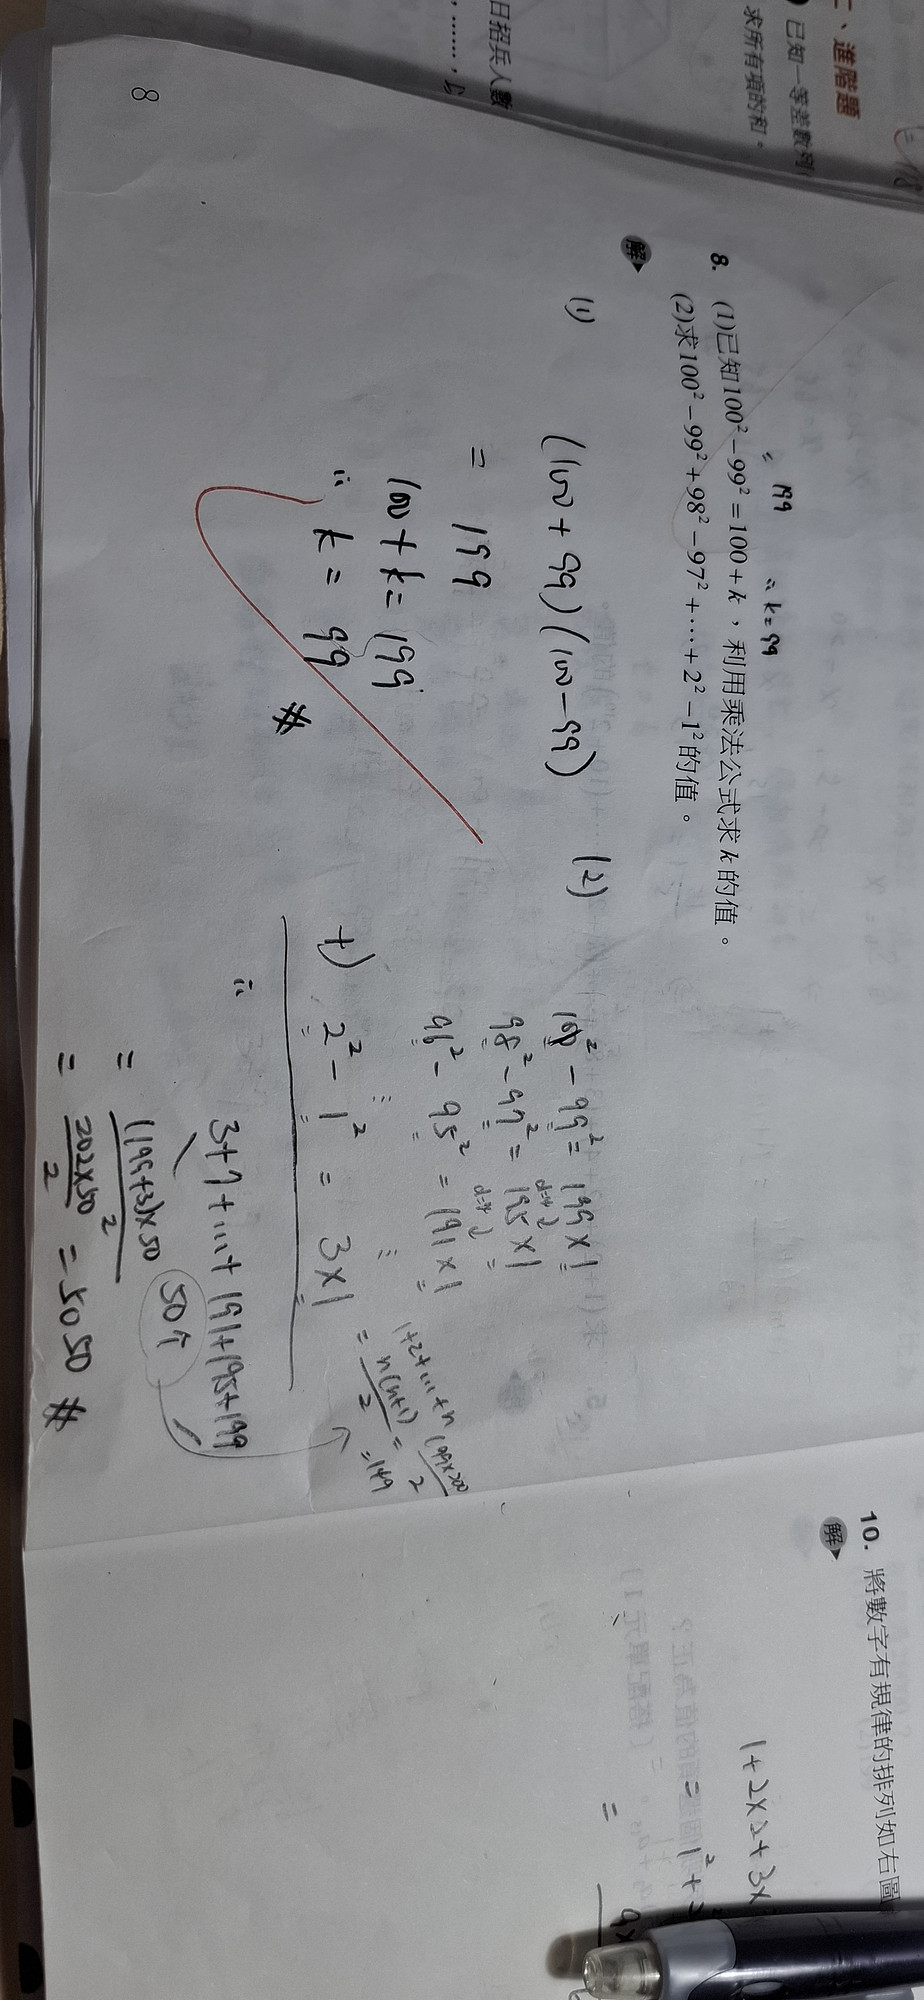 二、進階題
已知一等差數列
求所有項的和。
日招兵人數
8. (1)已知100²－99²＝100＋k，利用乘法公式求k的值。
= 199 ∴ k = 99
(2)求100²－99²＋98²－97²＋…＋2²－1²的值。
解
(1)
(100 + 99)(100 - 99)
= 199
100 + k = 199
∴ k = 99 #
(2)
100² - 99² = 199 x 1
98² - 97² = 195 x 1
96² - 95² = 191 x 1
⋮ ⋮
+) 2² - 1² = 3 x 1
∴ 3+7+…+191+195+199
50個
= (199+3)x50 / 2
= 202x50 / 2 = 5050 #
1+2+…+n
= n(n+1) / 2 = 199x200 / 2
= 149
8
10. 將數字有規律的排列如右圖
解
1+2x2+3x
= 1²+2
=